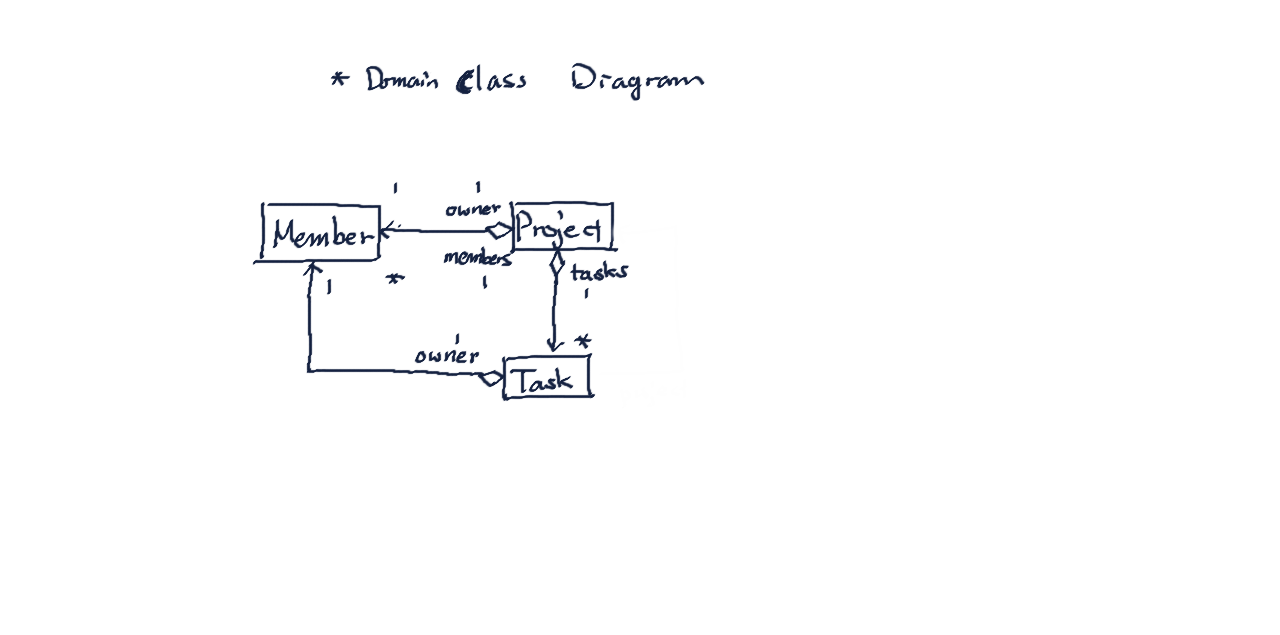 * Domain Class Diagram
1 1
owner
Member Project
members
* 1
tasks
1 1
1 *
owner
Task